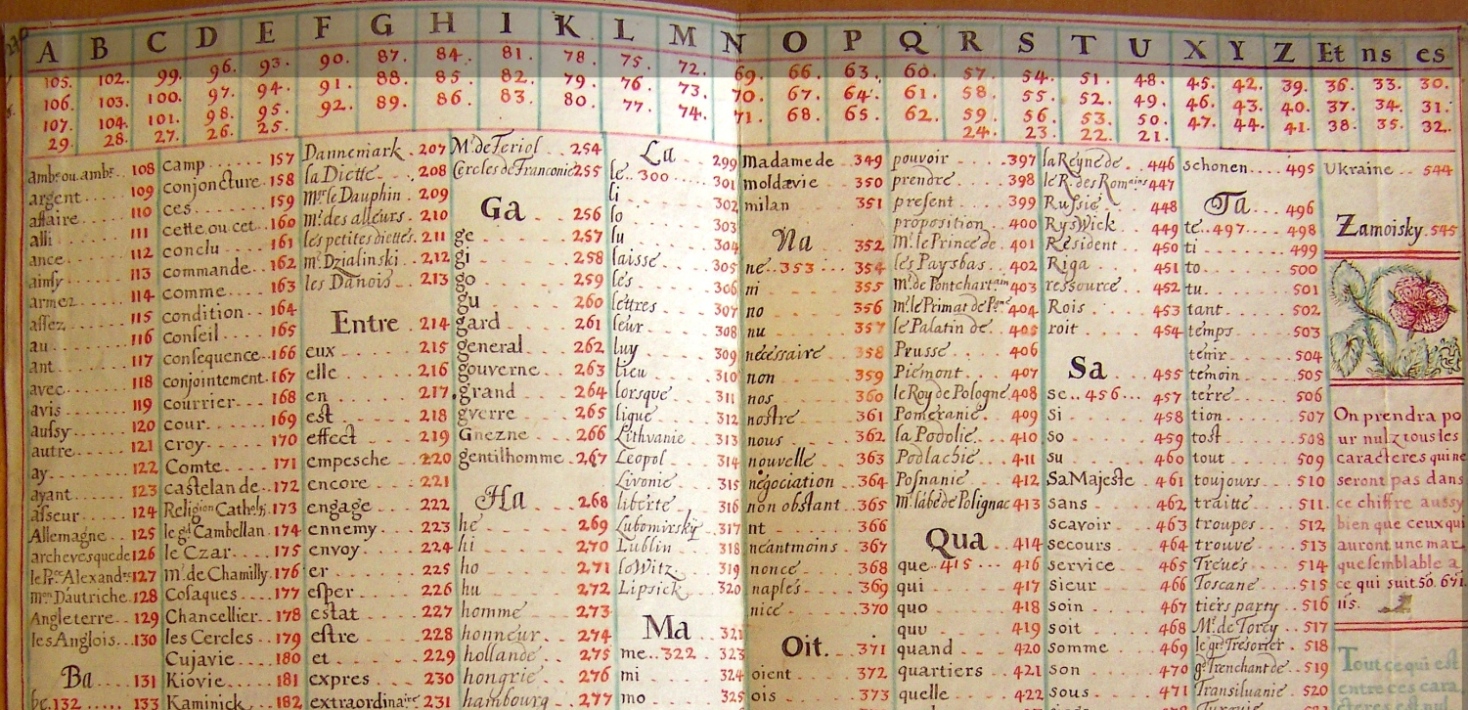 A B C D E F G H I K L M N O P Q R S T U X Y Z Et ns es
105. 102. 99. 96. 93. 90. 87. 84. 81. 78. 75. 72. 69. 66. 63. 60. 57. 54. 51. 48. 45. 42. 39. 36. 33. 30.
106. 103. 100. 97. 94. 91. 88. 85. 82. 79. 76. 73. 70. 67. 64. 61. 58. 55. 52. 49. 46. 43. 40. 37. 34. 31.
107. 104. 101. 98. 95. 92. 89. 86. 83. 80. 77. 74. 71. 68. 65. 62. 59. 56. 53. 50. 47. 44. 41. 38. 35. 32.
29. 28. 27. 26. 25. 24. 23. 22. 21.
amb. ou. ambr. 108
argent 109
affaire 110
alli 111
ance 112
ainsy 113
armez 114
assez 115
au 116
ant 117
avec 118
avis 119
aussy 120
autre 121
ay 122
ayant 123
asseur 124
Allemagne 125
archevesque de 126
le Pr. Alexandre 127
mon Dautriche 128
Angleterre 129
les Anglois 130
Ba 131
be. 132 133
camp 157
conjoncture 158
ces 159
cette ou cet 160
conclu 161
commande 162
comme 163
condition 164
Conseil 165
consequence 166
conjointement 167
courrier 168
cour 169
croy 170
Comte 171
castelan de 172
Religion Cathol. 173
le gd Cambellan 174
le Czar 175
Mr. de Chamilly 176
Cosaques 177
Chancellier 178
les Cercles 179
Cujavie 180
Kiovie 181
Kaminick 182
Dannemark 207
la Diette 208
Mgr. le Dauphin 209
Mr. des alleurs 210
les petites diettes 211
mr. Dzialinski 212
les Danois 213
Entre 214
eux 215
elle 216
en 217
est 218
effect 219
empesche 220
encore 221
engage 222
ennemy 223
envoy 224
er 225
esper 226
estat 227
estre 228
et 229
expres 230
extraordinaire 231
Mr. de Feriol 254
Cercles de Franconie 255
Ga 256
ge 257
gi 258
go 259
gu 260
gard 261
general 262
gouverne 263
grand 264
gverre 265
Gnezne 266
gentilhomme 267
Ha 268
he 269
hi 270
ho 271
hu 272
homme 273
honneur 274
hollande 275
hongrie 276
hambourg 277
La 299
le. 300 301
li 302
lo 303
lu 304
laisse 305
les 306
lettres 307
leur 308
luy 309
lieu 310
lorsque 311
ligue 312
Lithvanie 313
Leopol 314
Livonie 315
liberte 316
Lubomirsky 317
Lublin 318
loWitz 319
Lipsick 320
Ma 321
me. 322 323
mi 324
mo 325
Madame de 349
moldavie 350
milan 351
Na 352
ne. 353 354
ni 355
no 356
nu 357
nécessaire 358
non 359
nos 360
nostre 361
nous 362
nouvelle 363
négociation 364
non obstant 365
nt 366
néantmoins 367
nonce 368
naples 369
nice 370
Oit. 371
oient 372
ois 373
pouvoir 397
prendre 398
present 399
proposition 400
Mr. le Prince de 401
les Paysbas 402
Mr. de Pontchartrain 403
Mr. le Primat de Pgne 404
le Palatin de 405
Prusse 406
Piemont 407
le Roy de Pologne 408
Pomeranie 409
la Podolie 410
Podlachie 411
Posnanie 412
Mr. l'abé de Polignac 413
Qua 414
que 415 416
qui 417
quo 418
quv 419
quand 420
quartiers 421
quelle 422
la Reyne de 446
le R. des Romains 447
Russie 448
RysWick 449
Resident 450
Riga 451
ressource 452
Rois 453
roit 454
Sa 455
se. 456 457
si 458
so 459
su 460
Sa Majeste 461
sans 462
scavoir 463
secours 464
service 465
sieur 466
soin 467
soit 468
somme 469
son 470
sous 471
schonen 495
Ta 496
te. 497 498
ti 499
to 500
tu 501
tant 502
temps 503
tenir 504
temoin 505
terre 506
tion 507
tost 508
tout 509
toujours 510
traitte 511
troupes 512
trouve 513
Treves 514
Toscane 515
tiers party 516
Mr. de Torcy 517
le gr. Tresorier 518
gr. Trenchant de 519
Transiluanie 520
Ukraine 544
Zamoisky 545
On prendra po
ur nulz tous les
caracteres qui ne
seront pas dans
ce chiffre aussy
bien que ceux qui
auront une mar
que semblable a
ce qui suit 50. 671.
Tout ce qui est
entre ces cara
cteres est nul